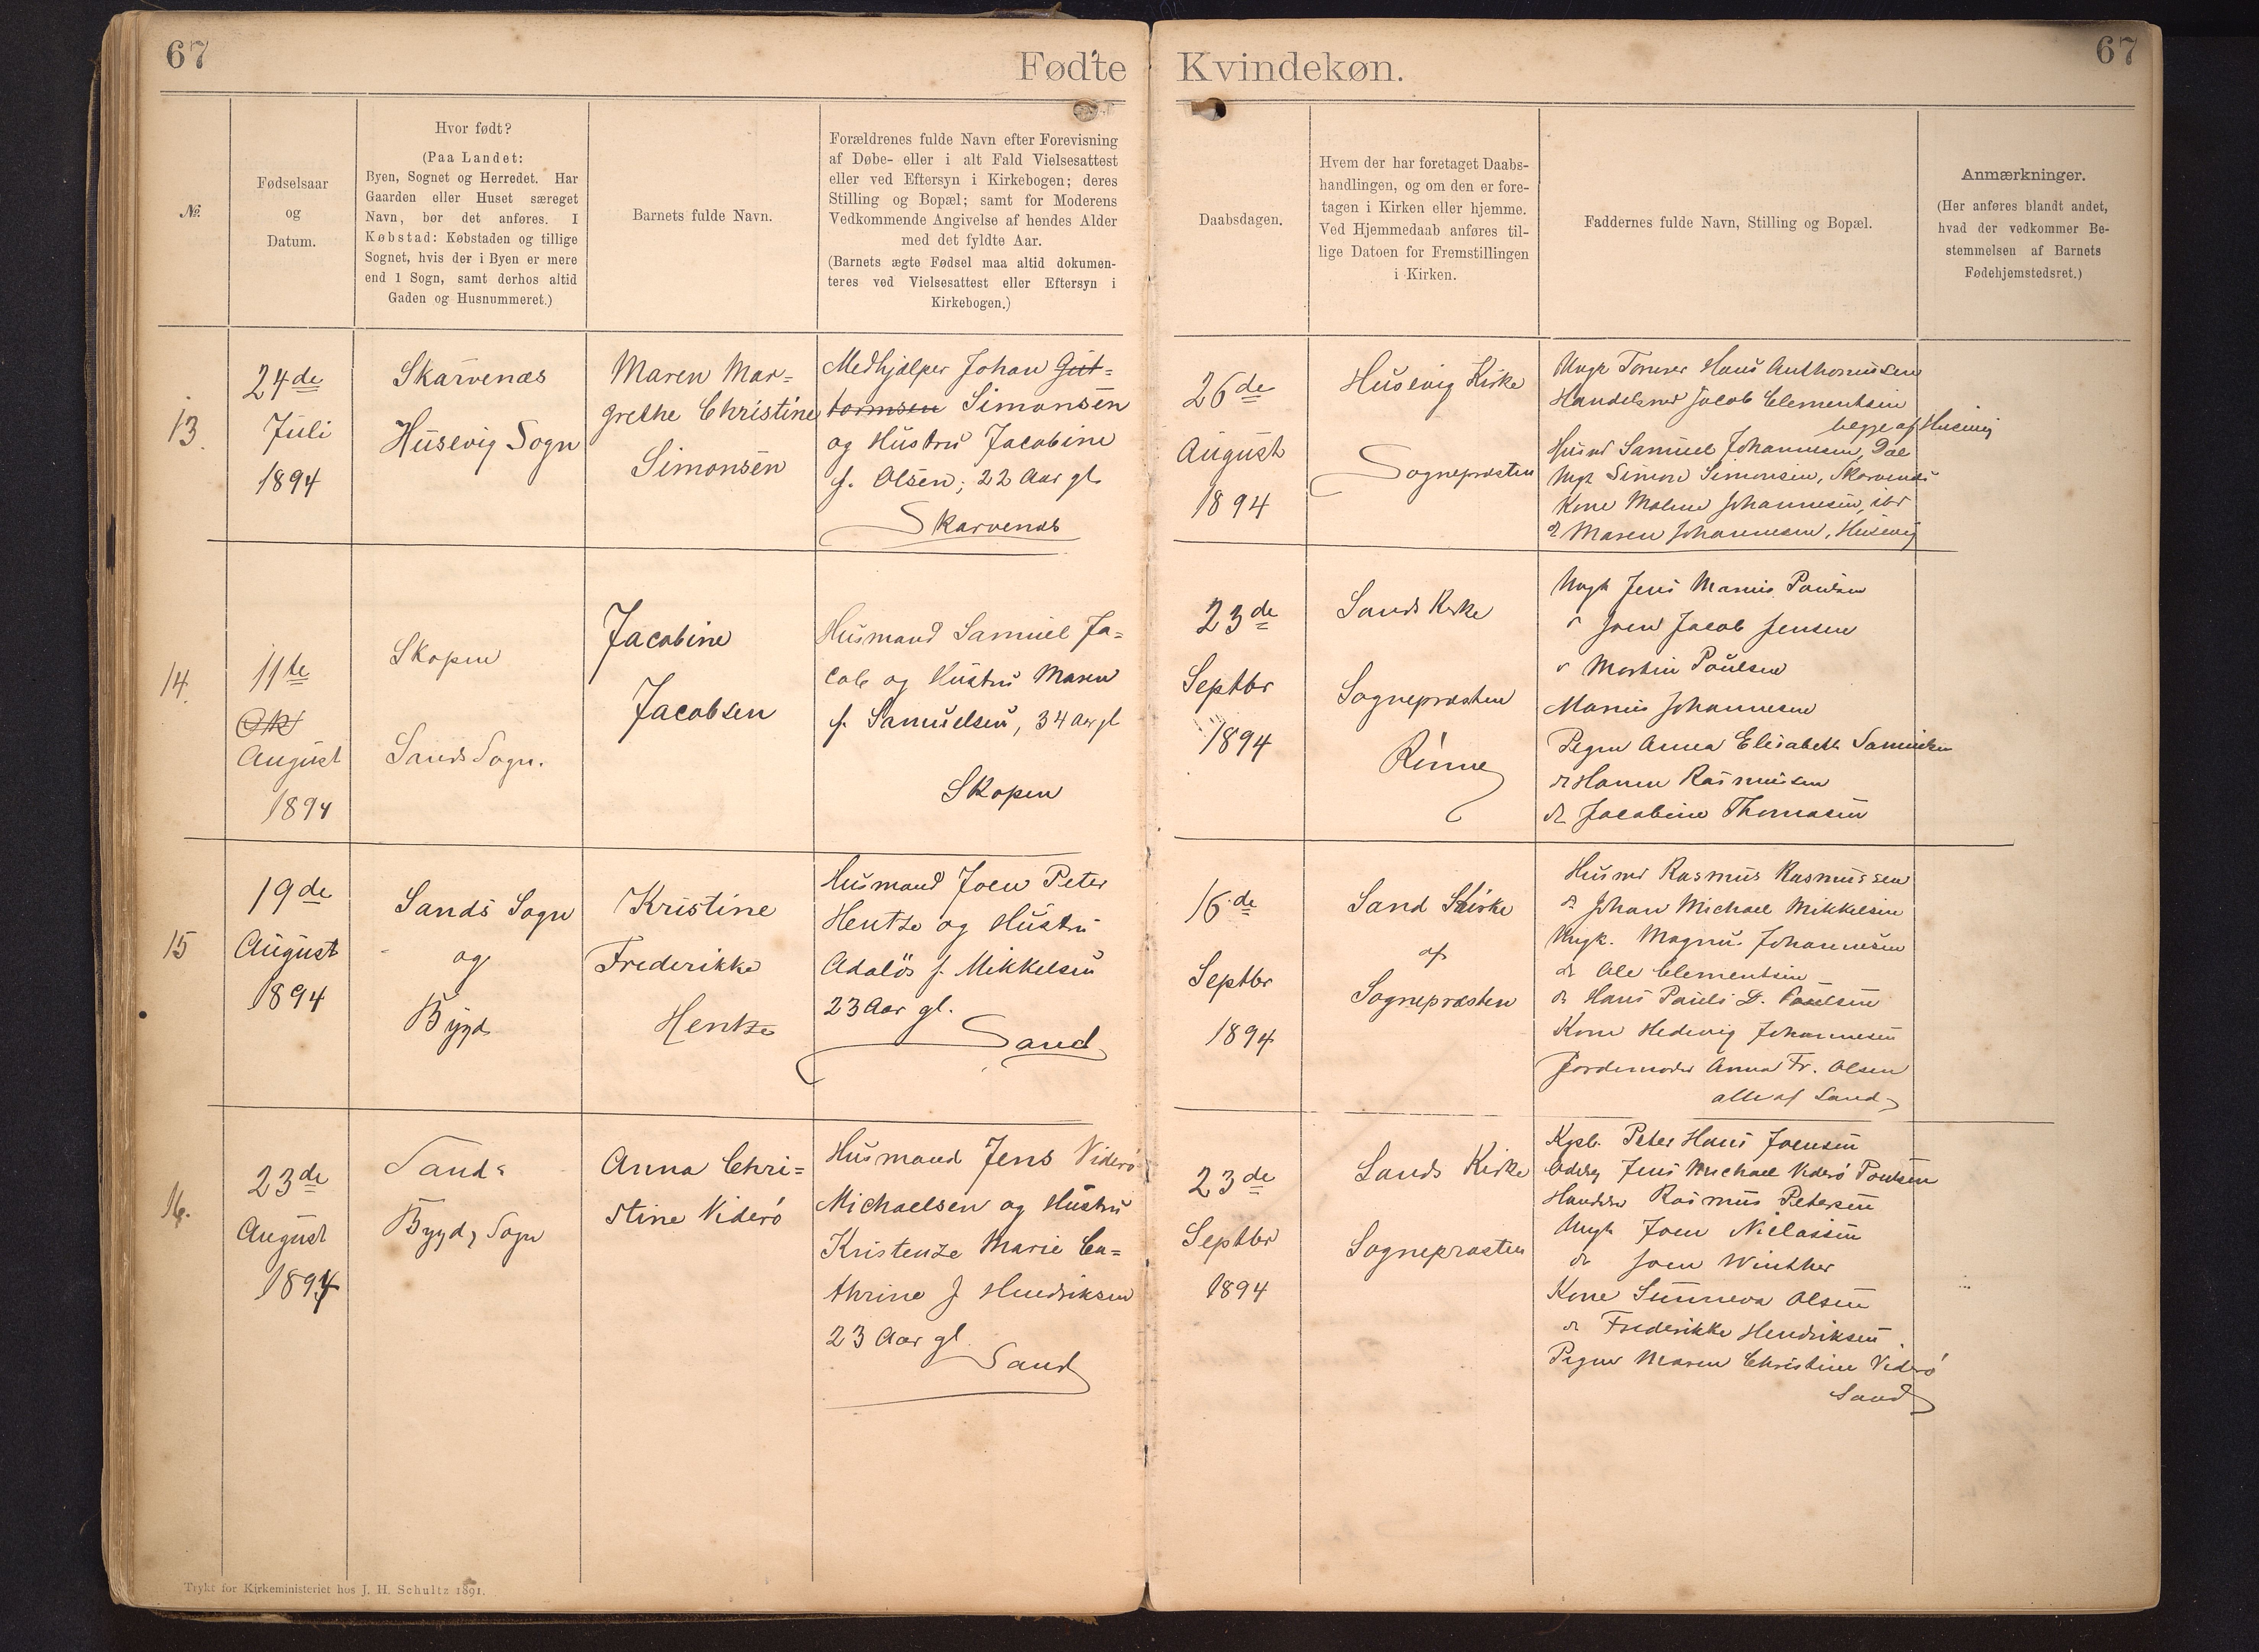 67
Fødte
Kvindekøn.
67
№.
Fødselsaar
og
Datum.
Hvor født?
(Paa Landet:
Byen, Sognet og Herredet. Har
Gaarden eller Huset særeget
Navn, bør det anføres. I
Købstad: Købstaden og tillige
Sognet, hvis der i Byen er mere
end 1 Sogn, samt derhos altid
Gaden og Husnummeret.)
Barnets fulde Navn.
Forældrenes fulde Navn efter Forevisning
af Døbe- eller i alt Fald Vielsesattest
eller ved Eftersyn i Kirkebogen; deres
Stilling og Bopæl; samt for Moderens
Vedkommende Angivelse af hendes Alder
med det fyldte Aar.
(Barnets ægte Fødsel maa altid dokumen-
teres ved Vielsesattest eller Eftersyn i
Kirkebogen.)
Daabsdagen.
Hvem der har foretaget Daabs-
handlingen, og om den er fore-
tagen i Kirken eller hjemme.
Ved Hjemmedaab anføres til-
lige Datoen for Fremstillingen
i Kirken.
Faddernes fulde Navn, Stilling og Bopæl.
Anmærkninger.
(Her anføres blandt andet,
hvad der vedkommer Be-
stemmelsen af Barnets
Fødehjemstedsret.)
13.
24de
Juli
1894
Skarvenæs
Husevig Sogn
Maren Mar=
grethe Christine
Simonsen
Medhjælper Johan Gut=
tormsen Simonsen
og Hustru Jacobine
f. Olsen; 22 Aar gl.
Skarvenæs
26de
August
1894
Husevig Kirke
Sognepræsten
Ungk Tømrer Hans Anthoniusen
Handelsmd Jacob Clementsen
begge af Husevig
Husmd Samuel Johannesen, Dal
Ungk Simon Simonsen, Skarvenæs
Kone Malene Johannesen, ibd
Maren Johannesen, Husevig
14.
11te
August
1894
Skopen
Sands Sogn.
Jacobine
Jacobsen
Husmand Samuel Ja=
cob og Hustru Maren
f. Samuelsen, 34 Aar gl
Skopen
23de
Septbr
1894
Sands Kirke
Sognepræsten
Rinne
Ungk Jens Marius Poulsen
Joen Jacob Jensen
Martin Poulsen
Marius Johannesen
Pigen Anna Elisabeth Samuelsen
do Hanna Rasmussen
do Jacobine Thomasen
15
19de
August
1894
Sands Sogn
og
Bygd
Kristine
Frederikke
Hentze
Husmand Joen Peter
Hentze og Hustru
Adalös f. Mikkelsen
23 Aar gl.
Sand
16.de
Septbr
1894
Sand Kirke
af
Sognepræsten
Husmd Rasmus Rasmussen
do Johan Michael Mikkelsen
Ungk. Magnus Johannesen
do Ole Clementsen
do Hans Pauli D. Poulsen
Kone Hedevig Johannesen
Jordemoder Anna Fr. Olsen
alle af Sand
16.
23de
August
1894
Sands
Bygd, Sogn
Anna Chri=
stine Viderö
Husmand Jens Viderö
Michaelsen og Hustru
Kristenze Marie Ca=
thrine f Hendriksen
23 Aar gl
Sand
23de
Septbr
1894
Sands Kirke
Sognepræsten
Peter Hans Joensen
Jens Michael Viderö Poulsen
Rasmus Petersen
Ungk Joen Niclasen
do Joen Winther
Kone Sunneva Olsen
do Frederikke Hendriksen
Pigen Maren Christine Viderö
Sand
Trykt for Kirkeministeriet hos J. H. Schultz 1891.